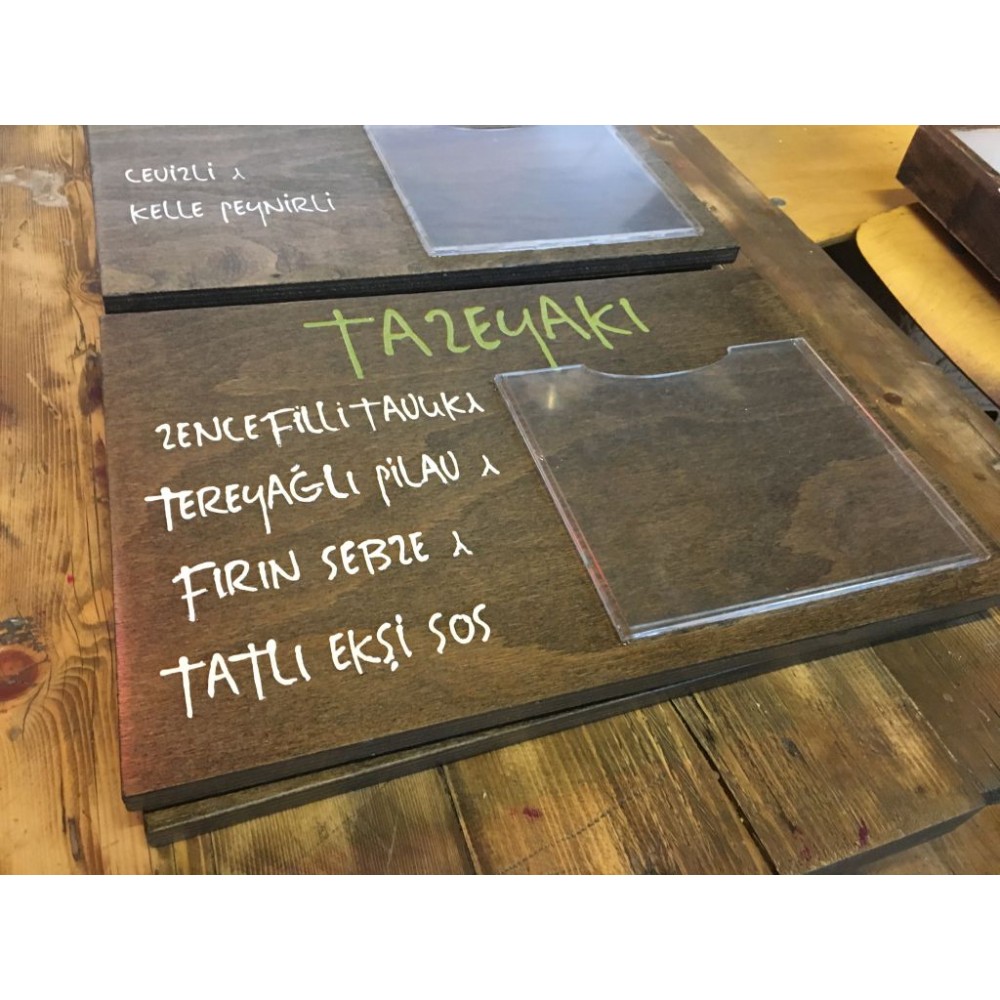 CEVİZLİ λ
KELLE PEYNİRLİ
TAZEYAKI
ZENCEFİLLİ TAVUK λ
TEREYAĞLI PİLAV λ
FIRIN SEBZE λ
TATLI EKŞİ SOS